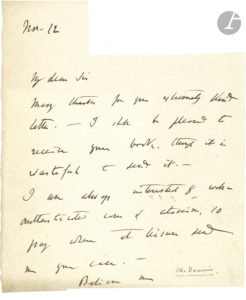 Nov. 12
My dear Sir
Many thanks for your extremely kind
letter. — I shall be pleased to
receive your book, though it is
wasteful to send it. —
I am always interested in well
authenticated cases of atavism, so
pray when at leisure send
me your case. —
Believe me
Ch. Darwin